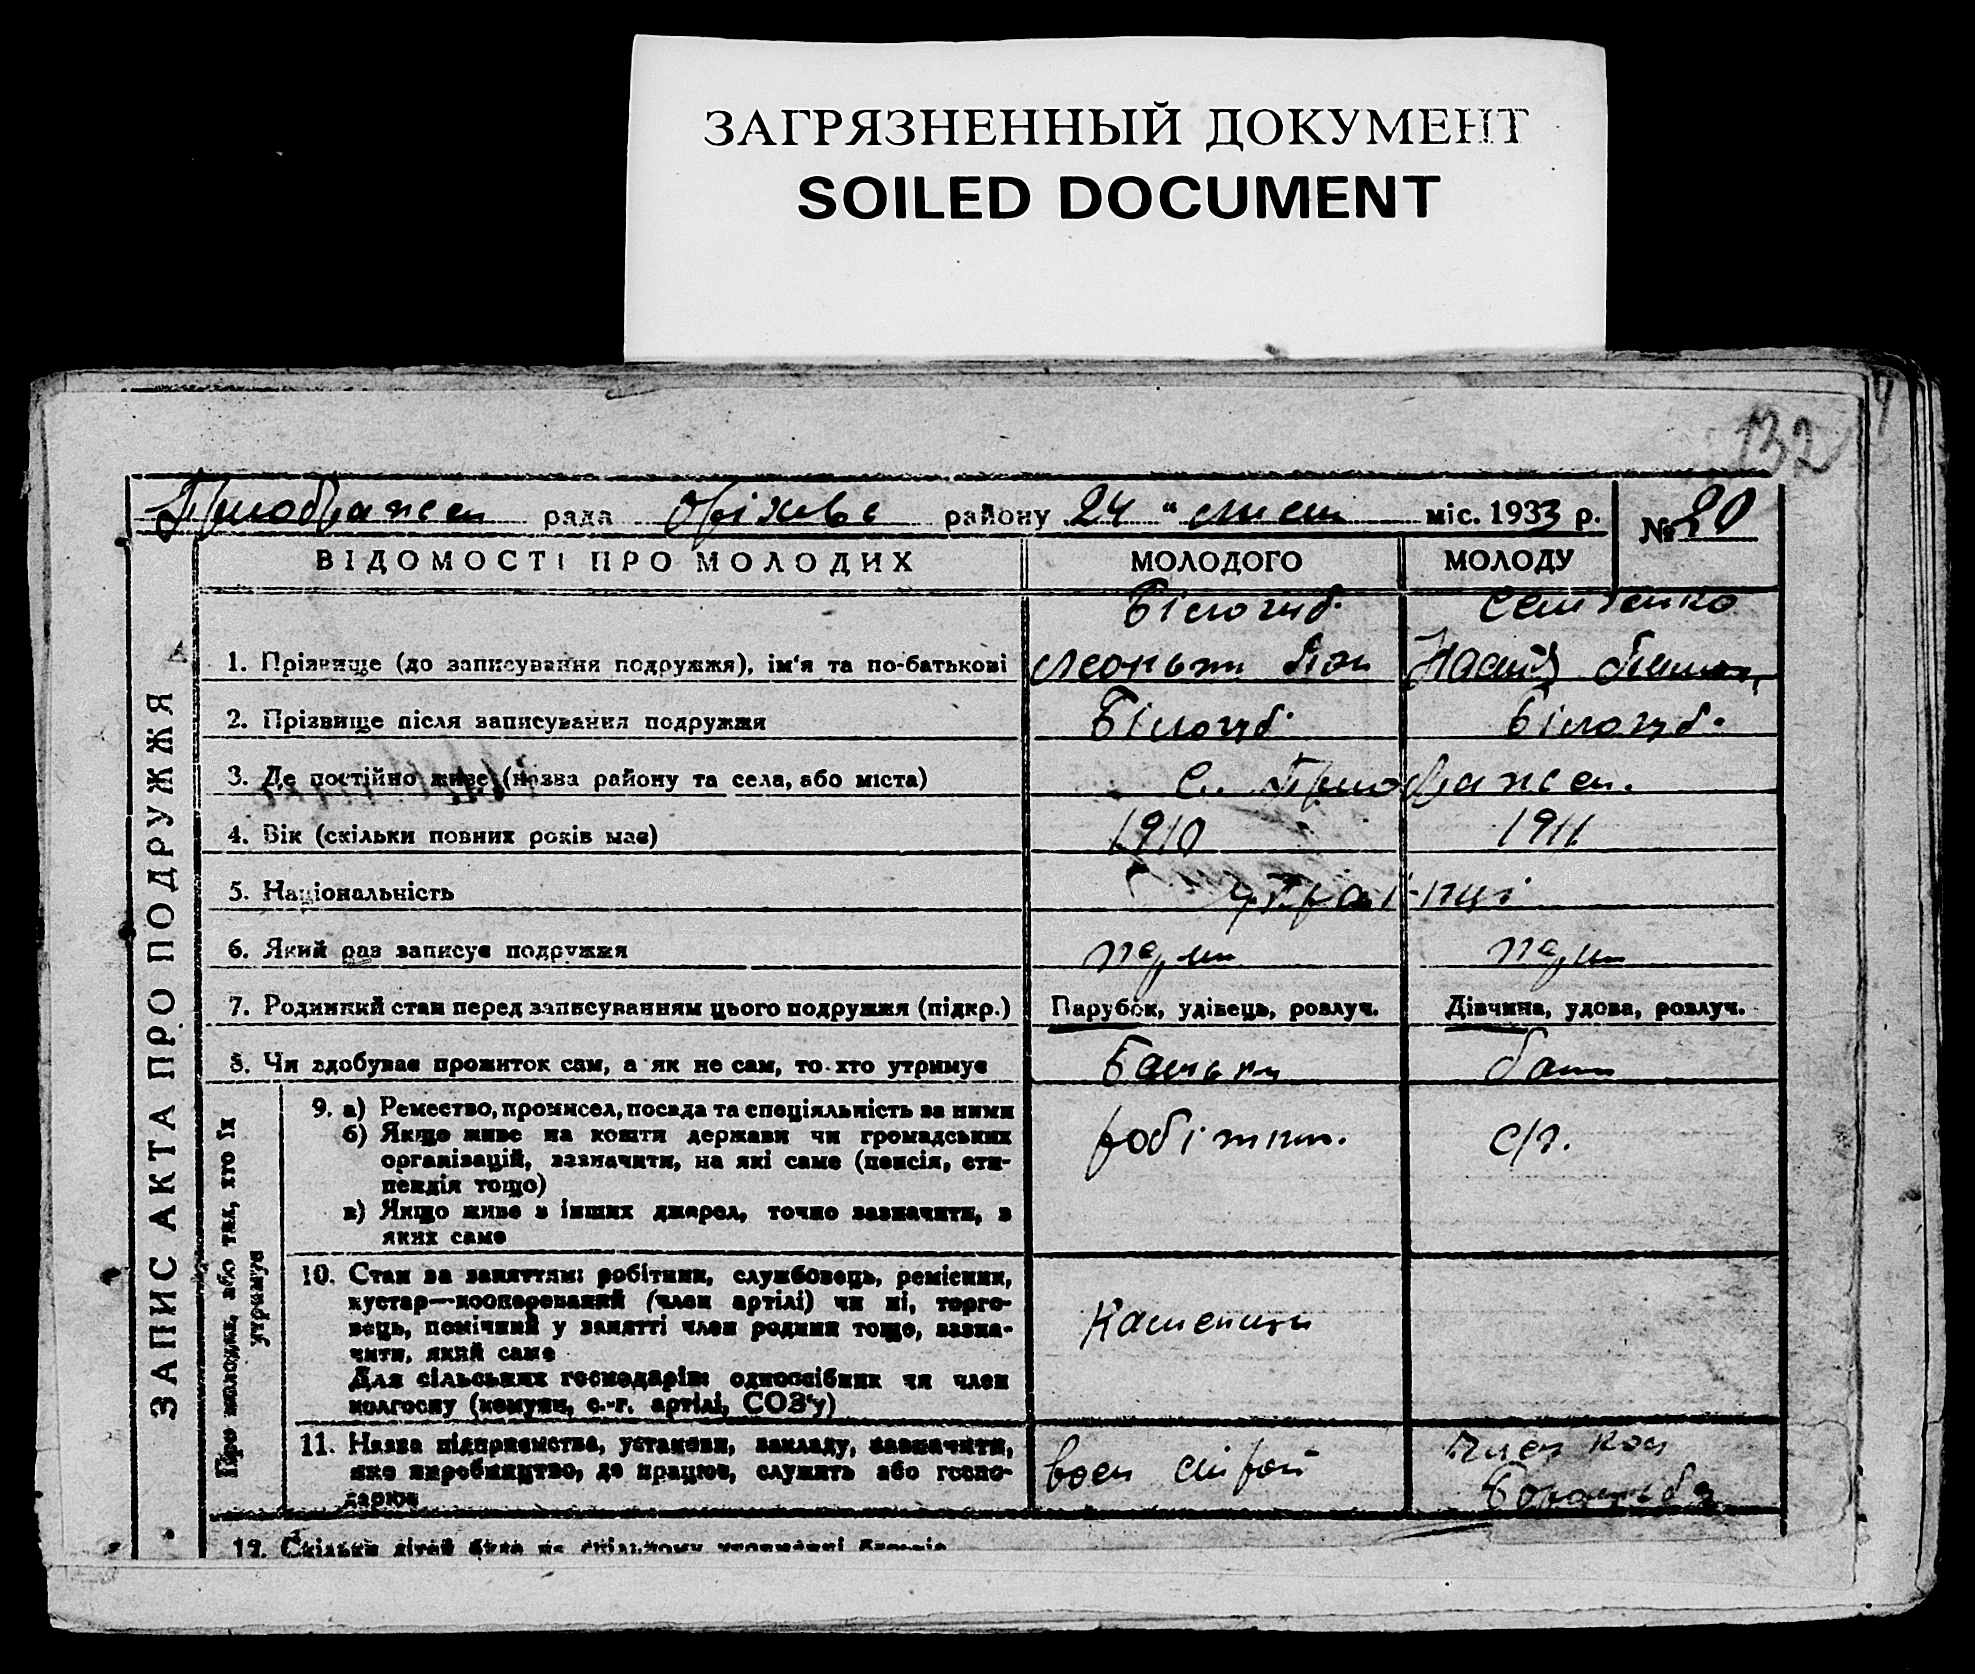 ЗАГРЯЗНЕННЫЙ ДОКУМЕНТ
SOILED DOCUMENT
132
рада Оріхівс району 24 " міс. 1933 р.
№
ВІДОМОСТІ ПРО МОЛОДИХ МОЛОДОГО МОЛОДУ
Білогуб. Семтенко
1. Прізвище (до записування подружжя), ім'я та по-батькові
2. Прізвище після записування подружжя Білогуб. Білогуб.
3. Де постійно живе (назва району та села, або міста) С.
4. Вік (скільки повних років має) 1910 1911
5. Національність Українці
6. Який раз записує подружжя перш перш
7. Родинний стан перед записуванням цього подружжя (підкр.) Парубок, удівець, розлуч. Дівчина, удова, розлуч.
8. Чи здобуває прожиток сам, а як не сам, то хто утримує Батьки бать
9. а) Ремество, промисел, посада та спеціяльність за ними робітник. с/г.
б) Якщо живе на кошти держави чи громадських
організацій, зазначити, на які саме (пенсія, сти-
пендія тощо)
в) Якщо живе з інших джерел, точно зазначити, з
яких саме
10. Стан за заняттям: робітник, службовець, ремісник,
кустар—кооперований (член артілі) чи ні, торго-
вець, помічний у занятті член родини тощо, зазна-
чити, який саме
Для сільських господарів: одноосібник чи член
колгоспу (комуни, с.-г. артілі, СОЗ'у)
11. Назва підприємства, установи, закладу, зазначити,
яке виробництво, де працює, служить або госпо-
дарює
член кол
Боротьба
12. Скільки дітей
ЗАПИС АКТА ПРО ПОДРУЖЖЯ
Про молодих, або тих, хто їх
утримує